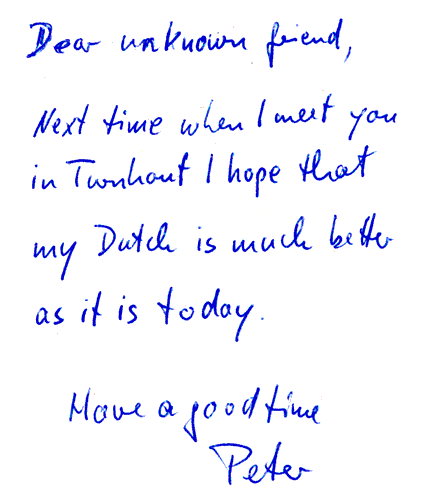 Dear unknown friend,
Next time when I meet you
in Turnhout I hope that
my Dutch is much better
as it is today.
Have a good time
Peter